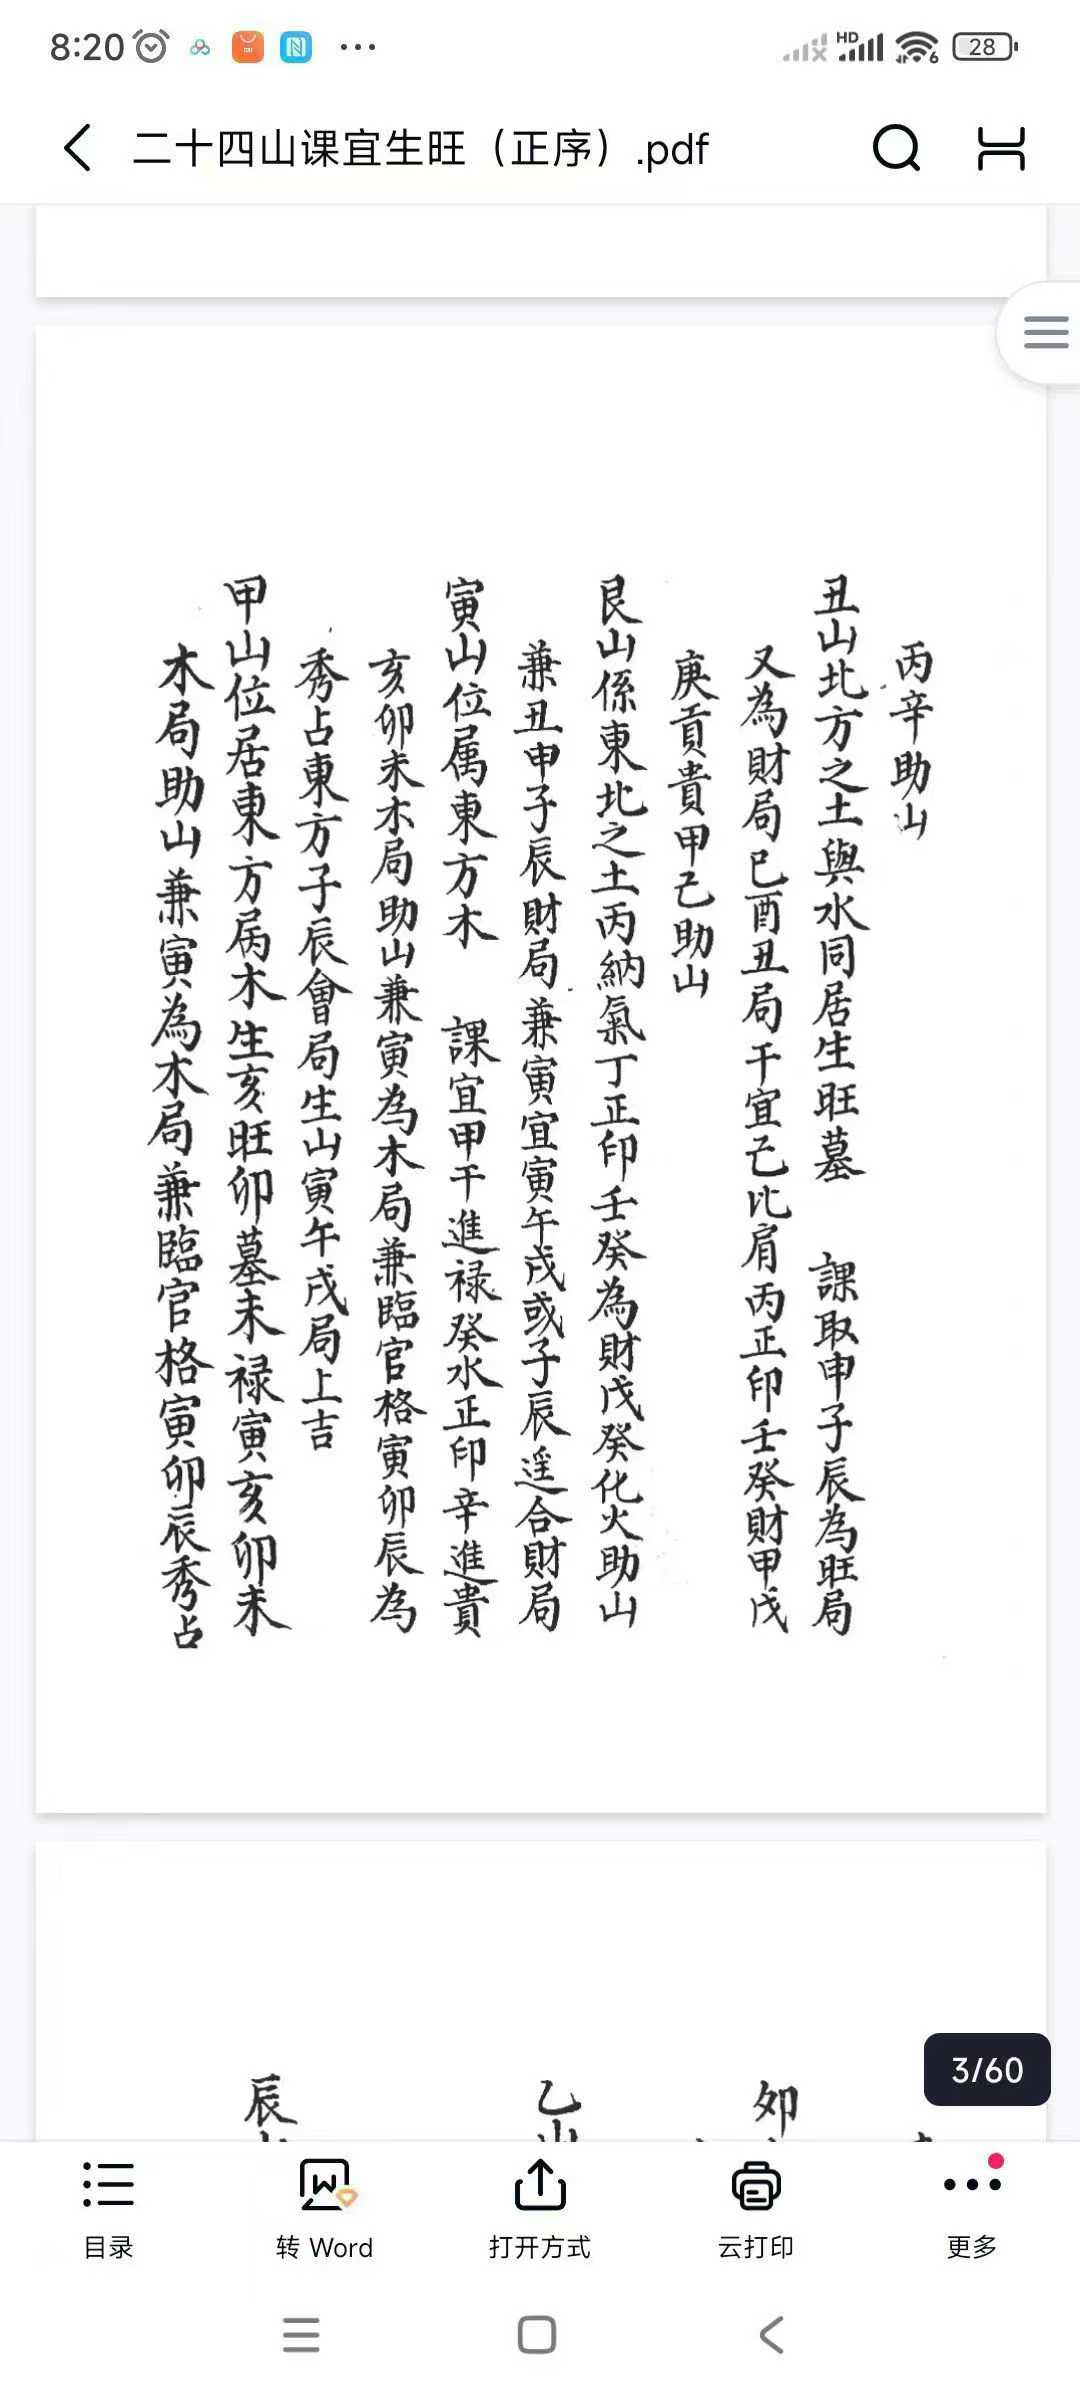 8:20
HD
6
28
二十四山课宜生旺（正序）.pdf
丙辛助山
丑山北方之土與水同居生旺墓　課取申子辰為旺局
又為財局巳酉丑局干宜己比肩丙正印壬癸財甲戊
庚貢貴甲己助山
艮山係東北之土丙納氣丁正印壬癸為財戊癸化火助山
兼丑申子辰財局兼寅宜寅午戌或子辰遥合財局
寅山位属東方木　課宜甲干進禄癸水正印辛進貴
亥卯未木局助山兼寅為木局兼臨官格寅卯辰為
秀占東方子辰會局生山寅午戌局上吉
甲山位居東方属木生亥旺卯墓未禄寅亥卯未
木局助山兼寅為木局兼臨官格寅卯辰秀占
卯
乙山
辰
3/60
目录
转 Word
打开方式
云打印
更多